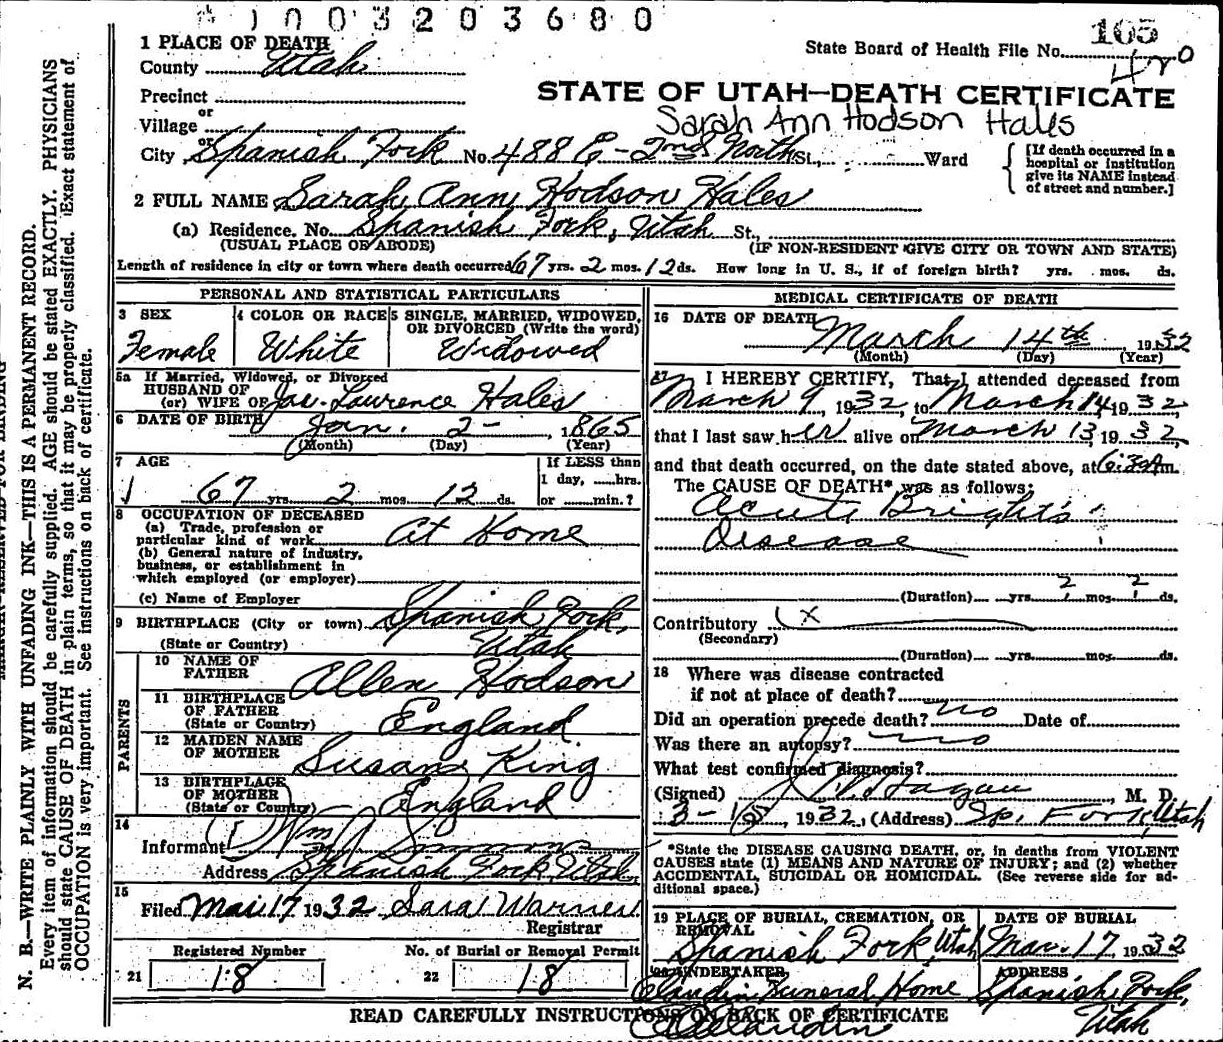 1003203680
105
State Board of Health File No.
420
1 PLACE OF DEATH
County Utah
STATE OF UTAH—DEATH CERTIFICATE
Precinct
or
Village
Sarah Ann Hodson Hales
or
City Spanish Fork No. 488 E - 2nd North St., Ward
[If death occurred in a
hospital or institution
give its NAME instead
of street and number.]
2 FULL NAME Sarah Ann Hodson Hales
(a) Residence. No. Spanish Fork, Utah St.,
(USUAL PLACE OF ABODE) (IF NON-RESIDENT GIVE CITY OR TOWN AND STATE)
Length of residence in city or town where death occurred 67 yrs. 2 mos. 12 ds. How long in U. S., if of foreign birth? yrs. mos. ds.
PERSONAL AND STATISTICAL PARTICULARS
3 SEX
Female
4 COLOR OR RACE
White
5 SINGLE, MARRIED, WIDOWED,
OR DIVORCED (Write the word)
Widowed
5a If Married, Widowed, or Divorced
HUSBAND OF
(or) WIFE OF Jas. Lawrence Hales
6 DATE OF BIRTH Jan. 2 - , 1865
(Month) (Day) (Year)
7 AGE
67 yrs. 2 mos. 12 ds.
If LESS than
1 day, hrs.
or min.?
8 OCCUPATION OF DECEASED
(a) Trade, profession or
particular kind of work At Home
(b) General nature of industry,
business, or establishment in
which employed (or employer)
(c) Name of Employer
9 BIRTHPLACE (City or town) Spanish Fork,
(State or Country) Utah
PARENTS
10 NAME OF
FATHER Allen Hodson
11 BIRTHPLACE
OF FATHER
(State or Country) England
12 MAIDEN NAME
OF MOTHER Susan King
13 BIRTHPLACE
OF MOTHER
(State or Country) England
14
Informant Wm
Address Spanish Fork, Utah
15
Filed Mar 17 1932 Sara Warner
Registrar
Registered Number
21 18
No. of Burial or Removal Permit
22 18
MEDICAL CERTIFICATE OF DEATH
16 DATE OF DEATH
March 14th, 1932
(Month) (Day) (Year)
17 I HEREBY CERTIFY, That I attended deceased from
March 9, 1932, to March 14 1932,
that I last saw her alive on March 13, 1932,
and that death occurred, on the date stated above, at 6:30 A m.
The CAUSE OF DEATH* was as follows:
Acute Bright's
Disease
(Duration) yrs. mos. ds.
Contributory
(Secondary)
(Duration) yrs. mos. ds.
18 Where was disease contracted
if not at place of death?
Did an operation precede death? no Date of
Was there an autopsy? no
What test confirmed diagnosis?
(Signed) Hagan, M. D.
3- 1932, (Address) Sp. Fork, Utah
*State the DISEASE CAUSING DEATH, or, in deaths from VIOLENT
CAUSES state (1) MEANS AND NATURE OF INJURY; and (2) whether
ACCIDENTAL, SUICIDAL OR HOMICIDAL. (See reverse side for ad-
ditional space.)
19 PLACE OF BURIAL, CREMATION, OR
REMOVAL
Spanish Fork, Utah
DATE OF BURIAL
Mar. 17, 1932
20 UNDERTAKER
Claudin Funeral Home
ADDRESS
Spanish Fork,
Utah
READ CAREFULLY INSTRUCTIONS ON BACK OF CERTIFICATE
N. B.—WRITE PLAINLY WITH UNFADING INK—THIS IS A PERMANENT RECORD.
Every item of information should be carefully supplied. AGE should be stated EXACTLY. PHYSICIANS
should state CAUSE OF DEATH in plain terms, so that it may be properly classified. Exact statement of
OCCUPATION is very important. See instructions on back of certificate.